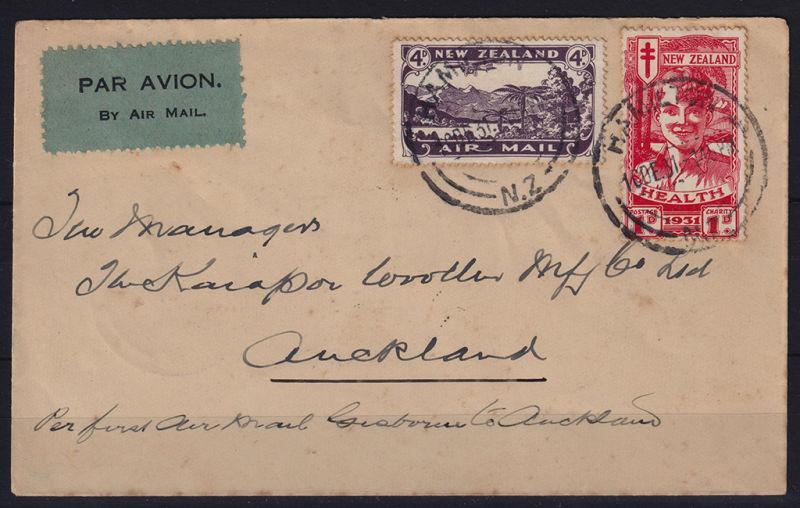 PAR AVION.
BY AIR MAIL.
4D NEW ZEALAND 4D
AIR MAIL
N.Z.
NEW ZEALAND
HEALTH
POSTAGE CHARITY
1D 1931 1D
The Managers
The Kaiapoi Woollen Mfg Co Ltd
Auckland
Per first Air Mail Gisborne to Auckland